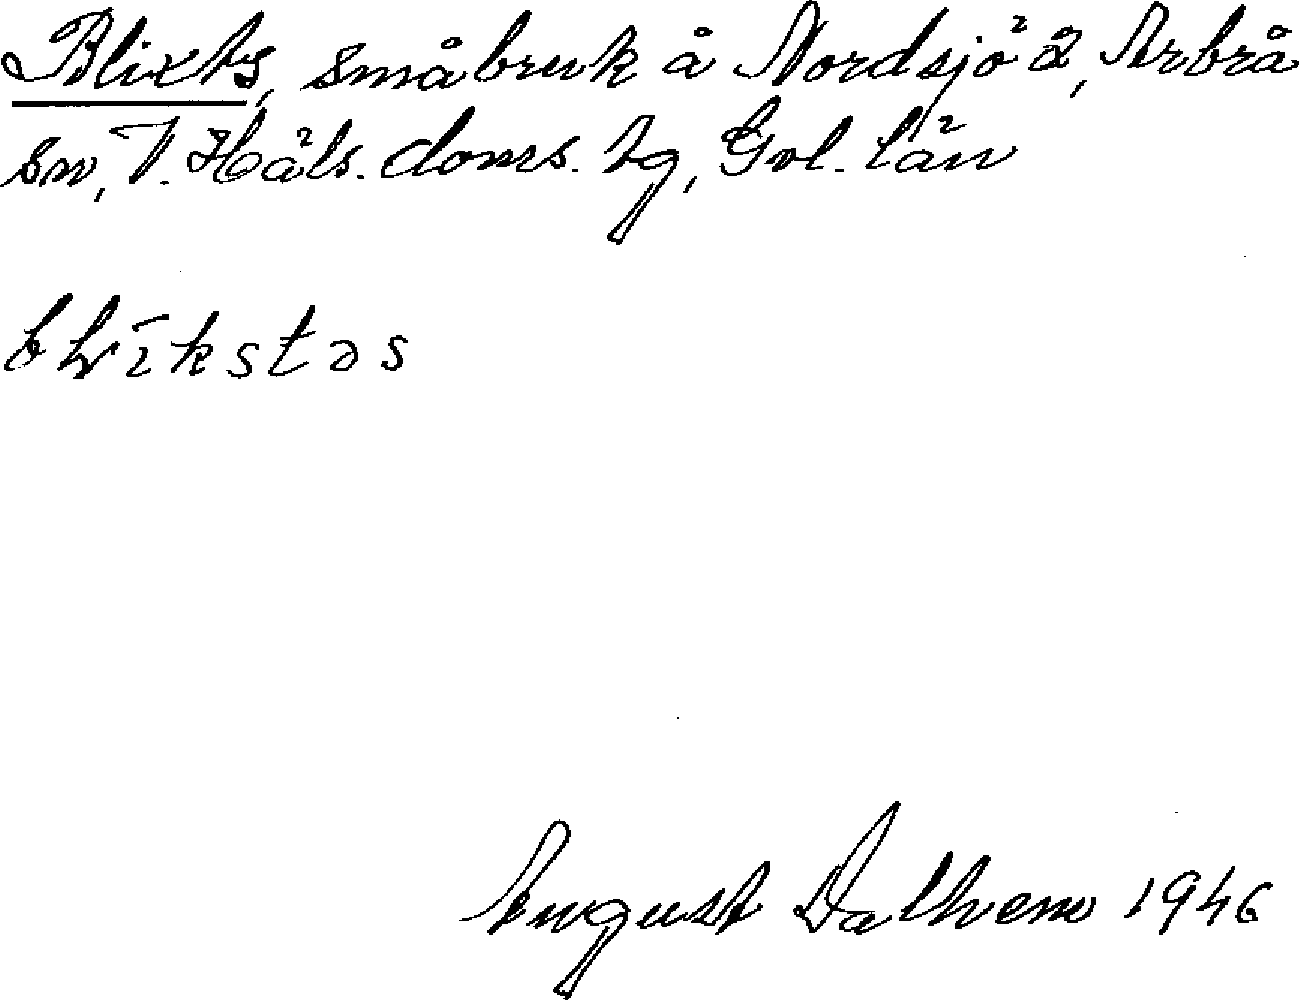 Blixts, småbruk å Nordsjö 2, Arbrå
sn, V. Häls. doms. tg, Gvl. län
blikstəs
August Dalhem 1946